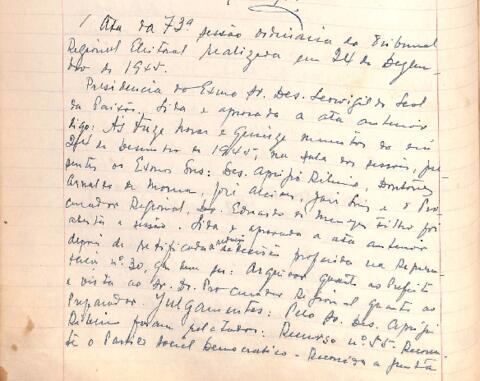 Ata da 73ª sessão ordinária do Tribunal
Regional Eleitoral realizada em 24 de Dezem-
bro de 1945.
Presidencia do Exmo Sr. Des. Leovigildo Leal
da Paixão. Lida e aprovada a ata anterior
digo: Às treze horas e quinze minutos do dia
24 de Dezembro de 1945, na sala das sessões, pre-
sentes os Exmos Snrs: Des. Aprígio Ribeiro, Doutores
Arnaldo de Moura, José Alcides, José e o Pro-
curador Regional, Des. Eduardo de Menezes Filho foi
aberta a sessão. Lida e aprovada a ata anterior
depois de retificada a decisão proferida na Represen-
tação nº 30, que tem por: Arquivar quanto ao Prefeito
e vista ao Sr. Dr. Procurador Regional quanto ao
Preparador. Julgamentos: Pelo Sr. Des. Aprígio
Ribeiro foram relatados: Recurso nº 55. Recorren-
te o Partido Social Democratico - Recorrida a Junta